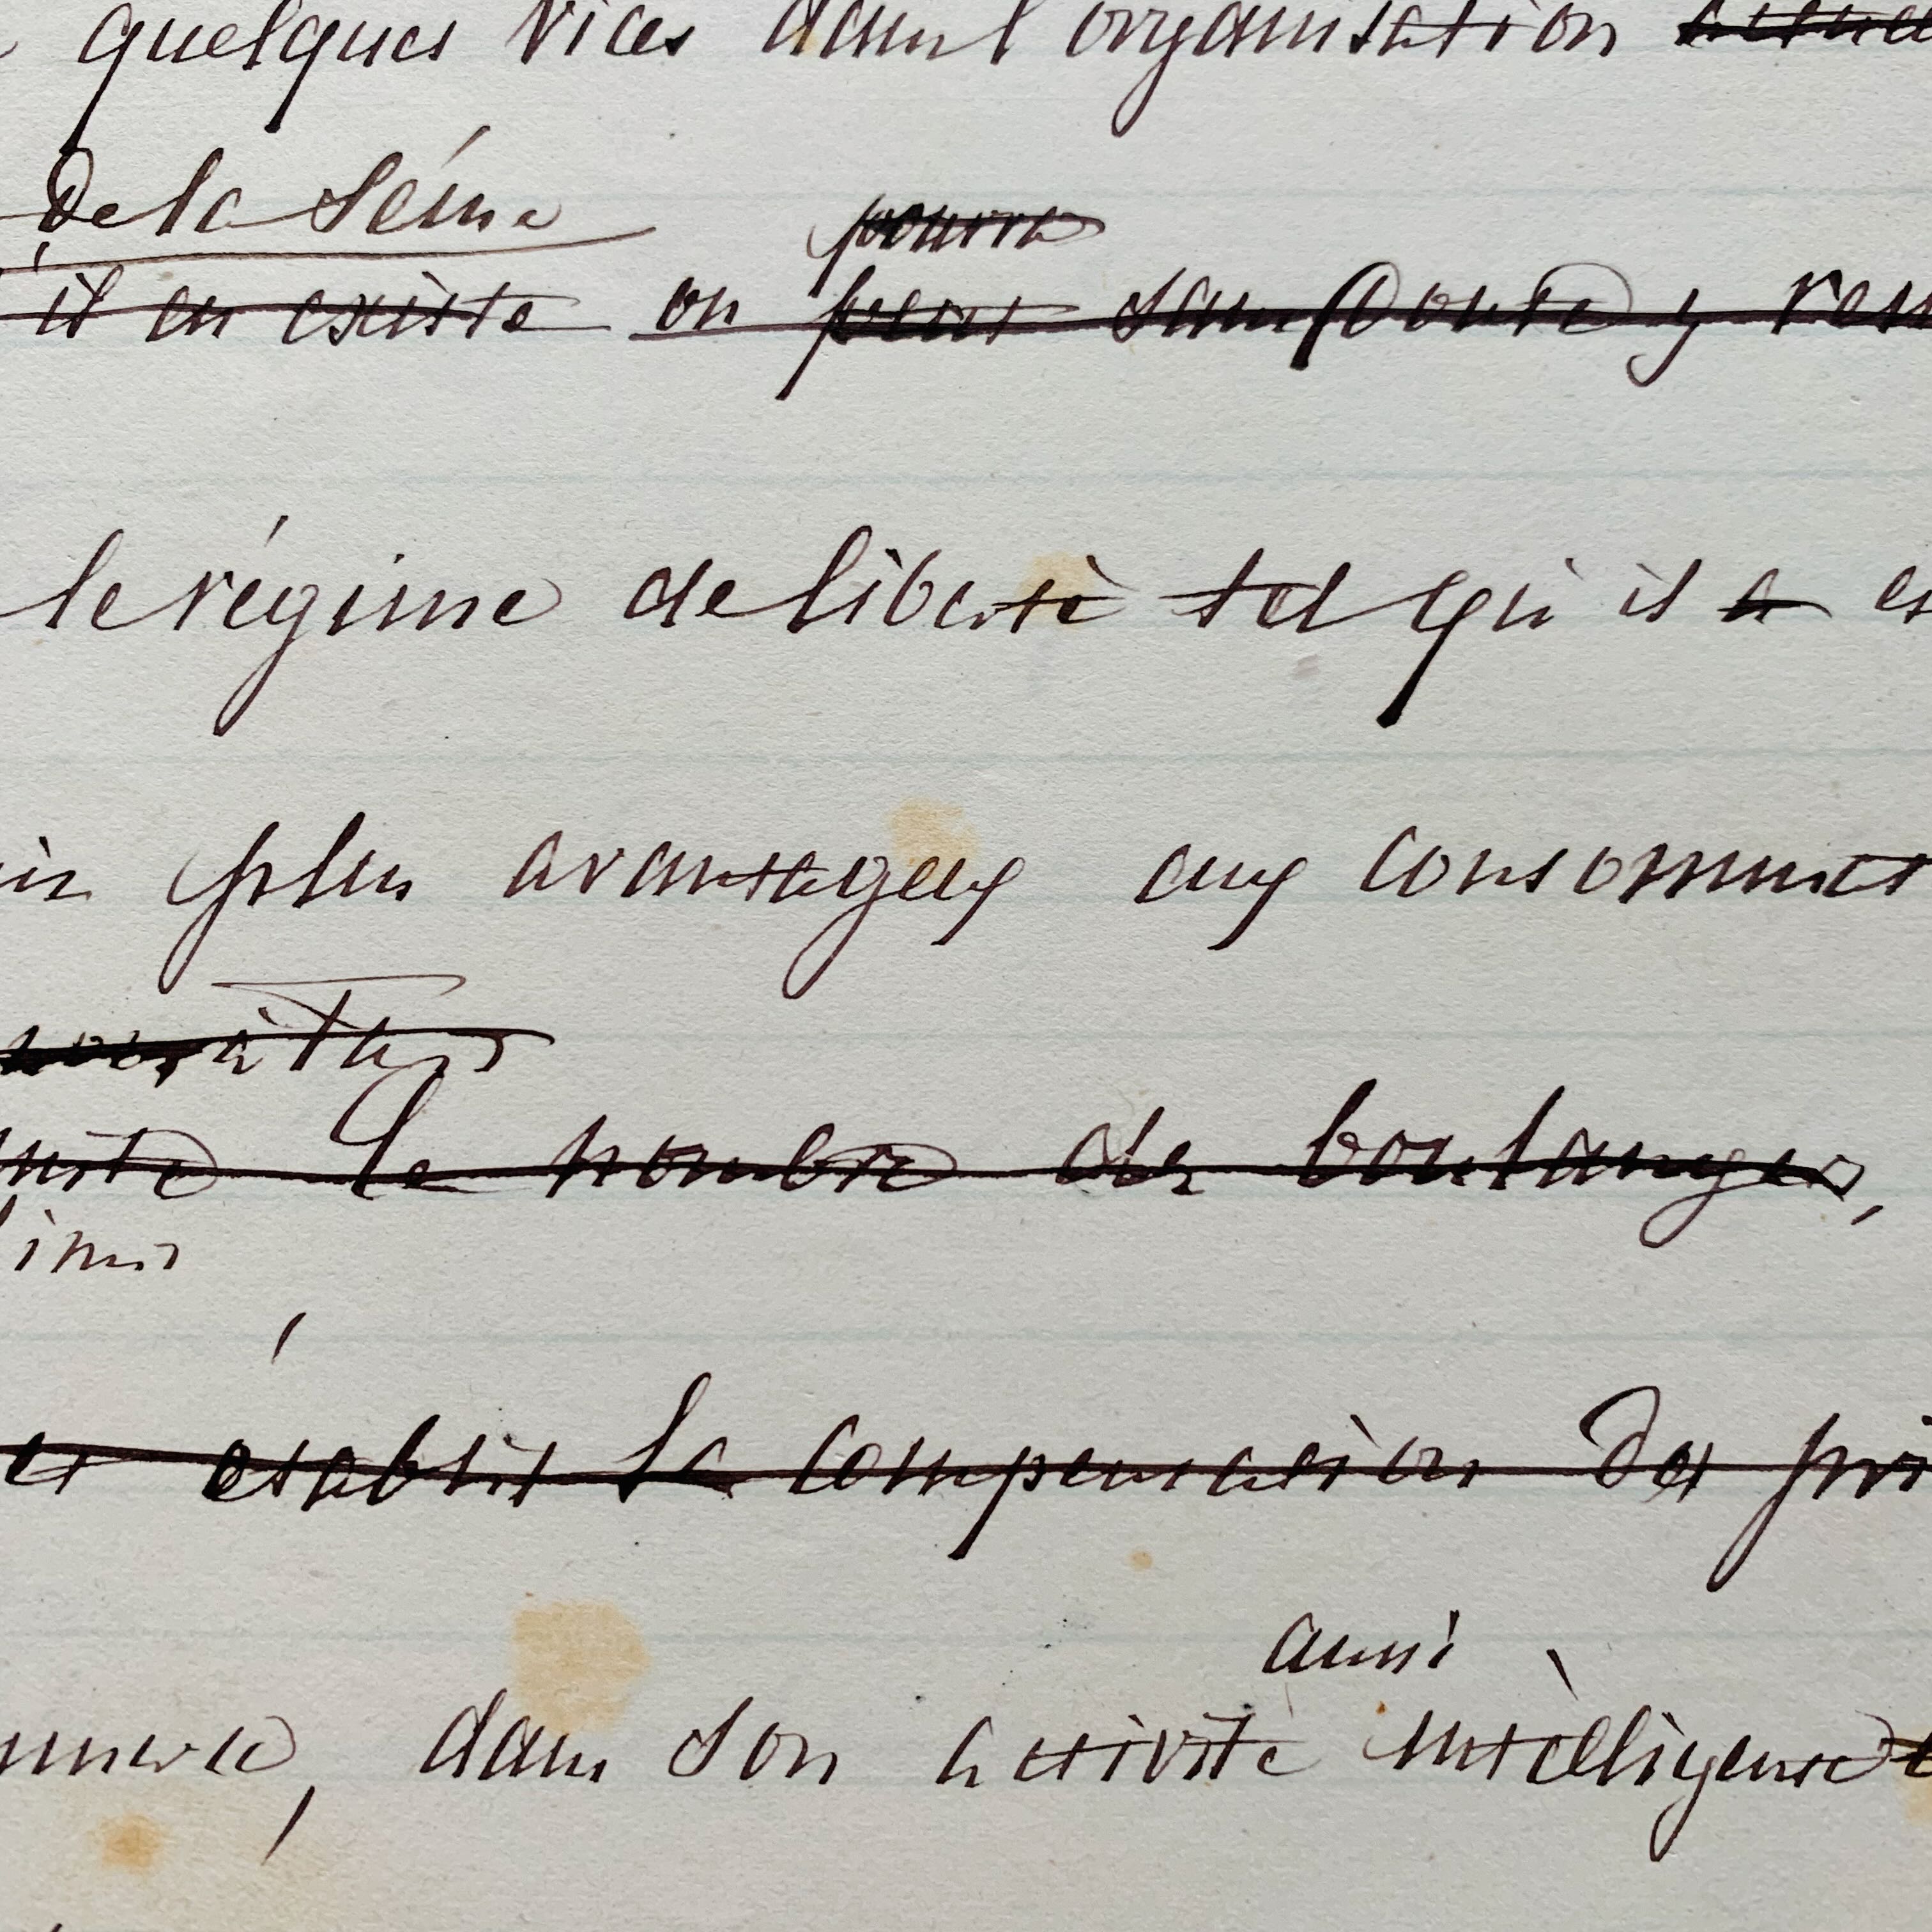 quelques vices dans l'organisation
de la Séine
pourra
il en existe on peut sans Doute y
le régime de liberté tel qu'il a es
plus avantageux aux consommat
à Paris
le nombre des boulangers,
et établir la compensation Des pri
aussi
dans son activité intèlligense